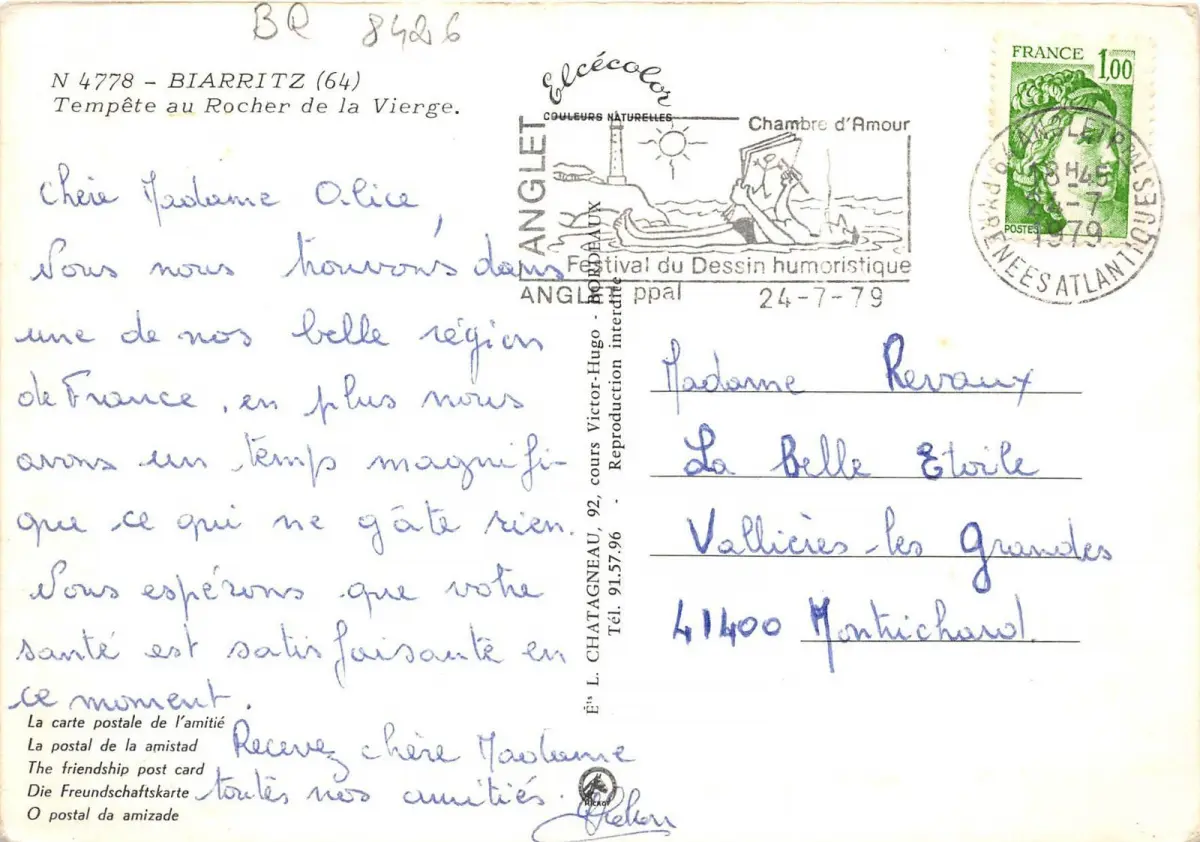 BR 8426
N 4778 - BIARRITZ (64)
Tempête au Rocher de la Vierge.
Elcécolor
COULEURS NATURELLES
ANGLET
Chambre d'Amour
Festival du Dessin humoristique
ANGLET ppal 24-7-79
FRANCE 1,00
POSTES
64 ANGLET PPAL
18H45
24-7
1979
PYRENEES ATLANTIQUES
Chère Madame Alice,
Nous nous trouvons dans
une de nos belle région
de France, en plus nous
avons un temps magnifi-
que ce qui ne gâte rien.
Nous espérons que votre
santé est satisfaisante en
ce moment.
Recevez chère Madame
toutes nos amitiés.
Madame Revaux
La Belle Etoile
Vallières-les Grandes
41400 Montrichard
Éts L. CHATAGNEAU, 92, cours Victor-Hugo - BORDEAUX
Tél. 91.57.96 - Reproduction interdite
La carte postale de l'amitié
La postal de la amistad
The friendship post card
Die Freundschaftskarte
O postal da amizade